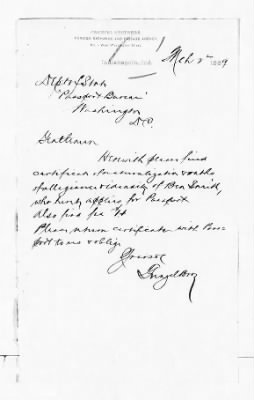 Indianapolis, Ind. Mch 2 1889
Dept of State
"Passport Bureau"
Washington
D.C.
Gentlemen
Herewith please find
certificate of naturalization & oaths
of allegiance & identity of
who hereby applies for Passport
Also find fee
Please return certificate with Pass-
port to us & oblige
Yours &c